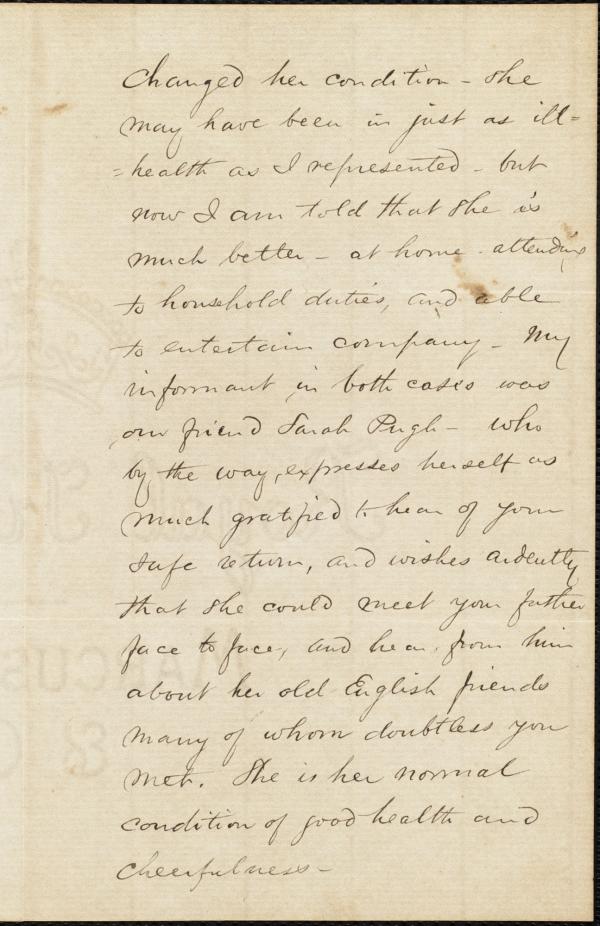 changed her condition - she
may have been in just as ill=
=health as I represented - but
now I am told that she is
much better - at home - attending
to household duties, and able
to entertain company - My
informant in both cases was
our friend Sarah Pugh - who
by the way, expresses herself as
much gratified to hear of your
safe return, and wishes ardently
that she could meet your father
face to face, and hear from him
about her old English friends
many of whom doubtless you
met. She is her normal
condition of good health and
cheerfulness -